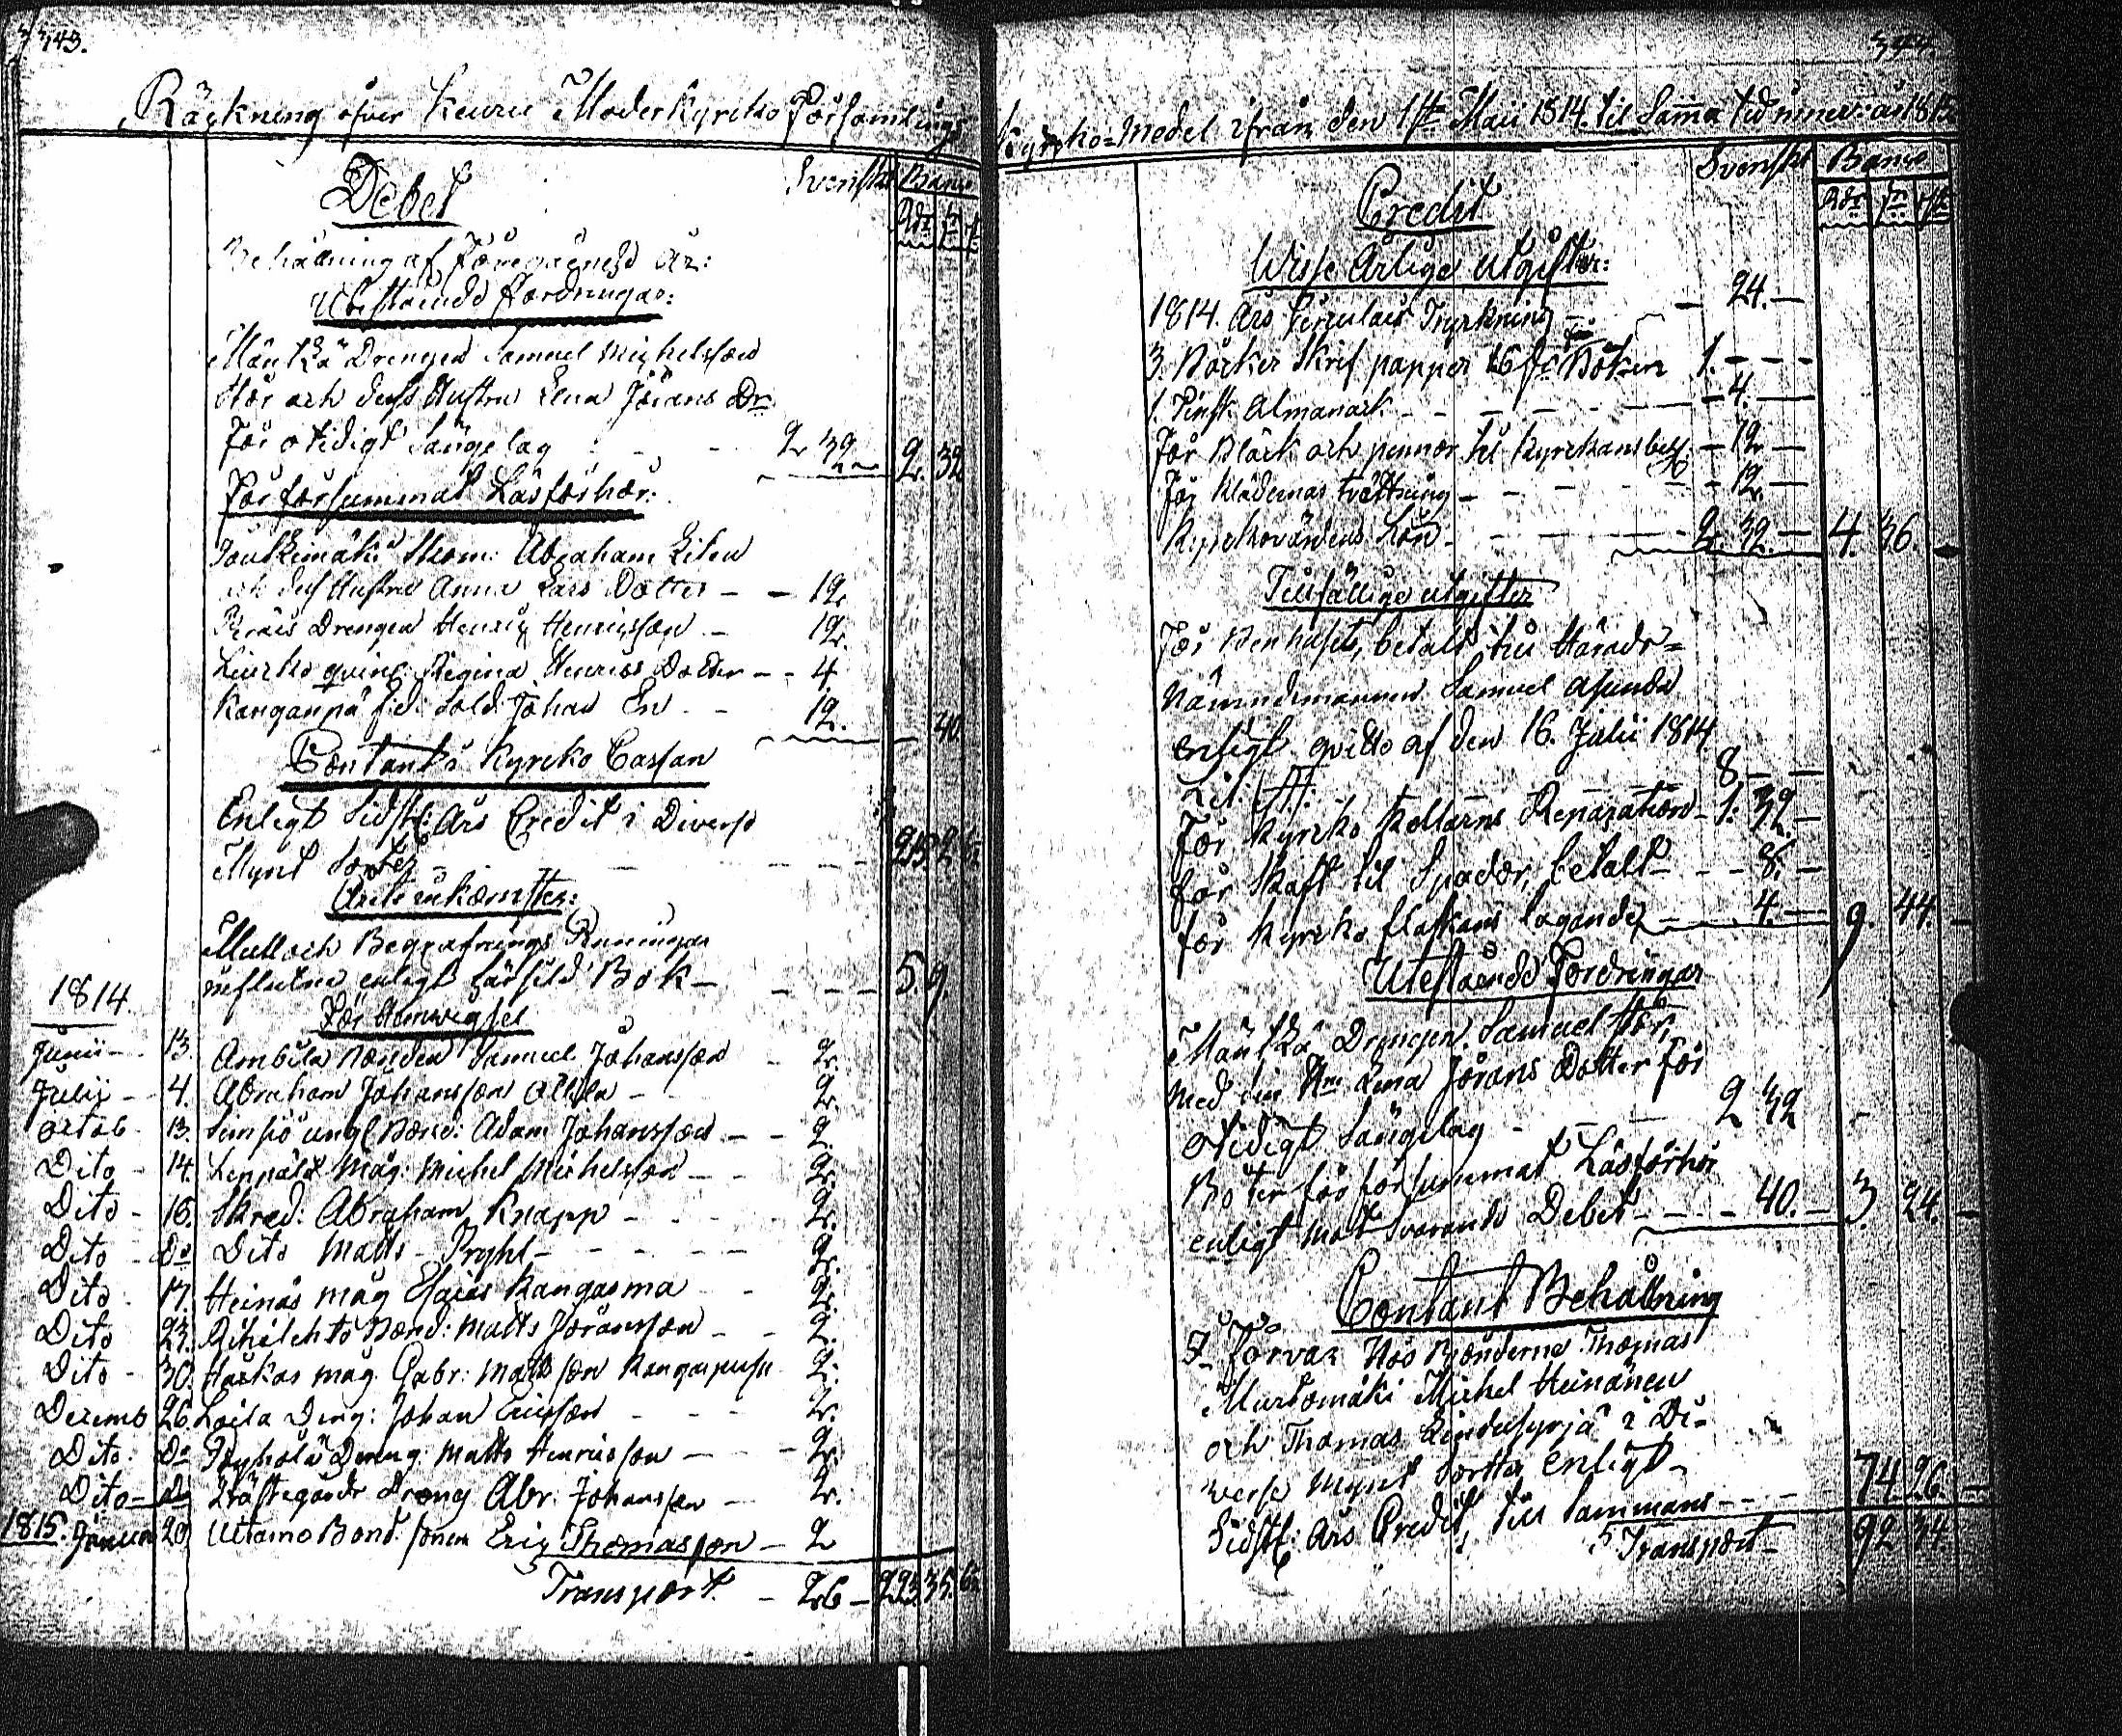 343.
Räkning öfver Keuru Moderkyrcko Församlings
Debet
Svenskt Banco
Rdr sr rst
Behållning af Föregående År:
Utestående Fordringar:
Mänkkä Drengen Samuel Michelsson
Stor och dess Hustru Lena Jörans Dr
för otidigt Sängelag - - 2 32 2. 32
För försummat Läsförhör:
Abraham
och dess Hustru Anna Lars Dotter - - 12.
Drengen Henric Henricsson - 12.
qvinl: Regina Henrics Dotter - - 4
Sold: Johan En - - 12. 40
Contant i Kyrcko Cassan
Enligt Sidstl: Års Credit i Diverse
Mynt Sorter - - - - 215. 2 6
Årets inkomster:
Mull och Begrafnings Ringningar
influtne enligt särskild Bok - - - - 5. 9.
För Hemvigsel
1814.
Junii - 13. Ambiala Bonden Samuel Johansson - 2.
Julii - 4. Abraham Johansson - 2.
Octob - 13. Simsiö ungl Bond: Adam Johansson - - 2.
Dito - 14. Leppälä Måg: Michel Michelsson - - 2.
Dito - 16. Skred: Abraham Knapp - - - 2.
Dito - Do Dito Matts Pryhl - - - - 2.
Dito - 17. Heinäs måg Esaias Kangasma - 2.
Dito 23. Riihilehto Bond: Matts Jöransson - - 2.
Dito - 30. måg Gabr: Mattsson 2.
Decemb 26. Loila Dreng: Johan Ericsson - - - 2.
Dito - Do Dreng: Matts Henricsson - - 2.
Dito - Do dreng Abr. Johansson - 2.
1815. Januar 29 Utamo Bond. sonen Eric Thomasson - 2
Transport. - 26 - 223. 35. 6
344.
Kyrcko-Medel ifrån den 1ste Maii 1814. til Samma tid innev: år 1815.
Svenskt Banco
Rdr sr rst
Credit
Wisse Årlige utgifter:
1814. Års Circulairs Tryckning - 24. -
3. Böcker Skrif papper til Böker 1. - - -
1. Finsk Almanack - - - - - 4. -
För Bläck och pennor til Kyrckans behof - 12 -
För Klädernas tvättning - - - - 12. -
Kyrckovärdens Lön - - - - 2. 32. - 4. 36. -
Tillfällige utgifter
För Benhuset, betalt till Härads-
Nämndemannen Samuel Asunda
enligt qvitto af den 16. Julii 1814
Lit. A. 8 - -
För Kyrcko Kellarns Reparation - 1. 32. -
för Skaft til Spador, betalt - - - 8. -
för Kyrcko flaskans lagande - 4. - 9. 44. -
Utestående Fordringar
Mänkkä Drengen Samuel Stor,
med sin Hru Lena Jörans Dotter för
otidigt Sängelag - - - 2 32 -
Böter för försummat Läsförhör
enligt mot Svarande Debet - - - 40. - 3. 24. -
Contant Behållning
I förvar Hos Bönderne Thomas
Murtomäki Michel Heinänen
och Thomas i Di-
verse Mynt Sorter enligt
Sidstl: Års Credit, till Sammans - - - 74. 26. -
Transport - 92 34.